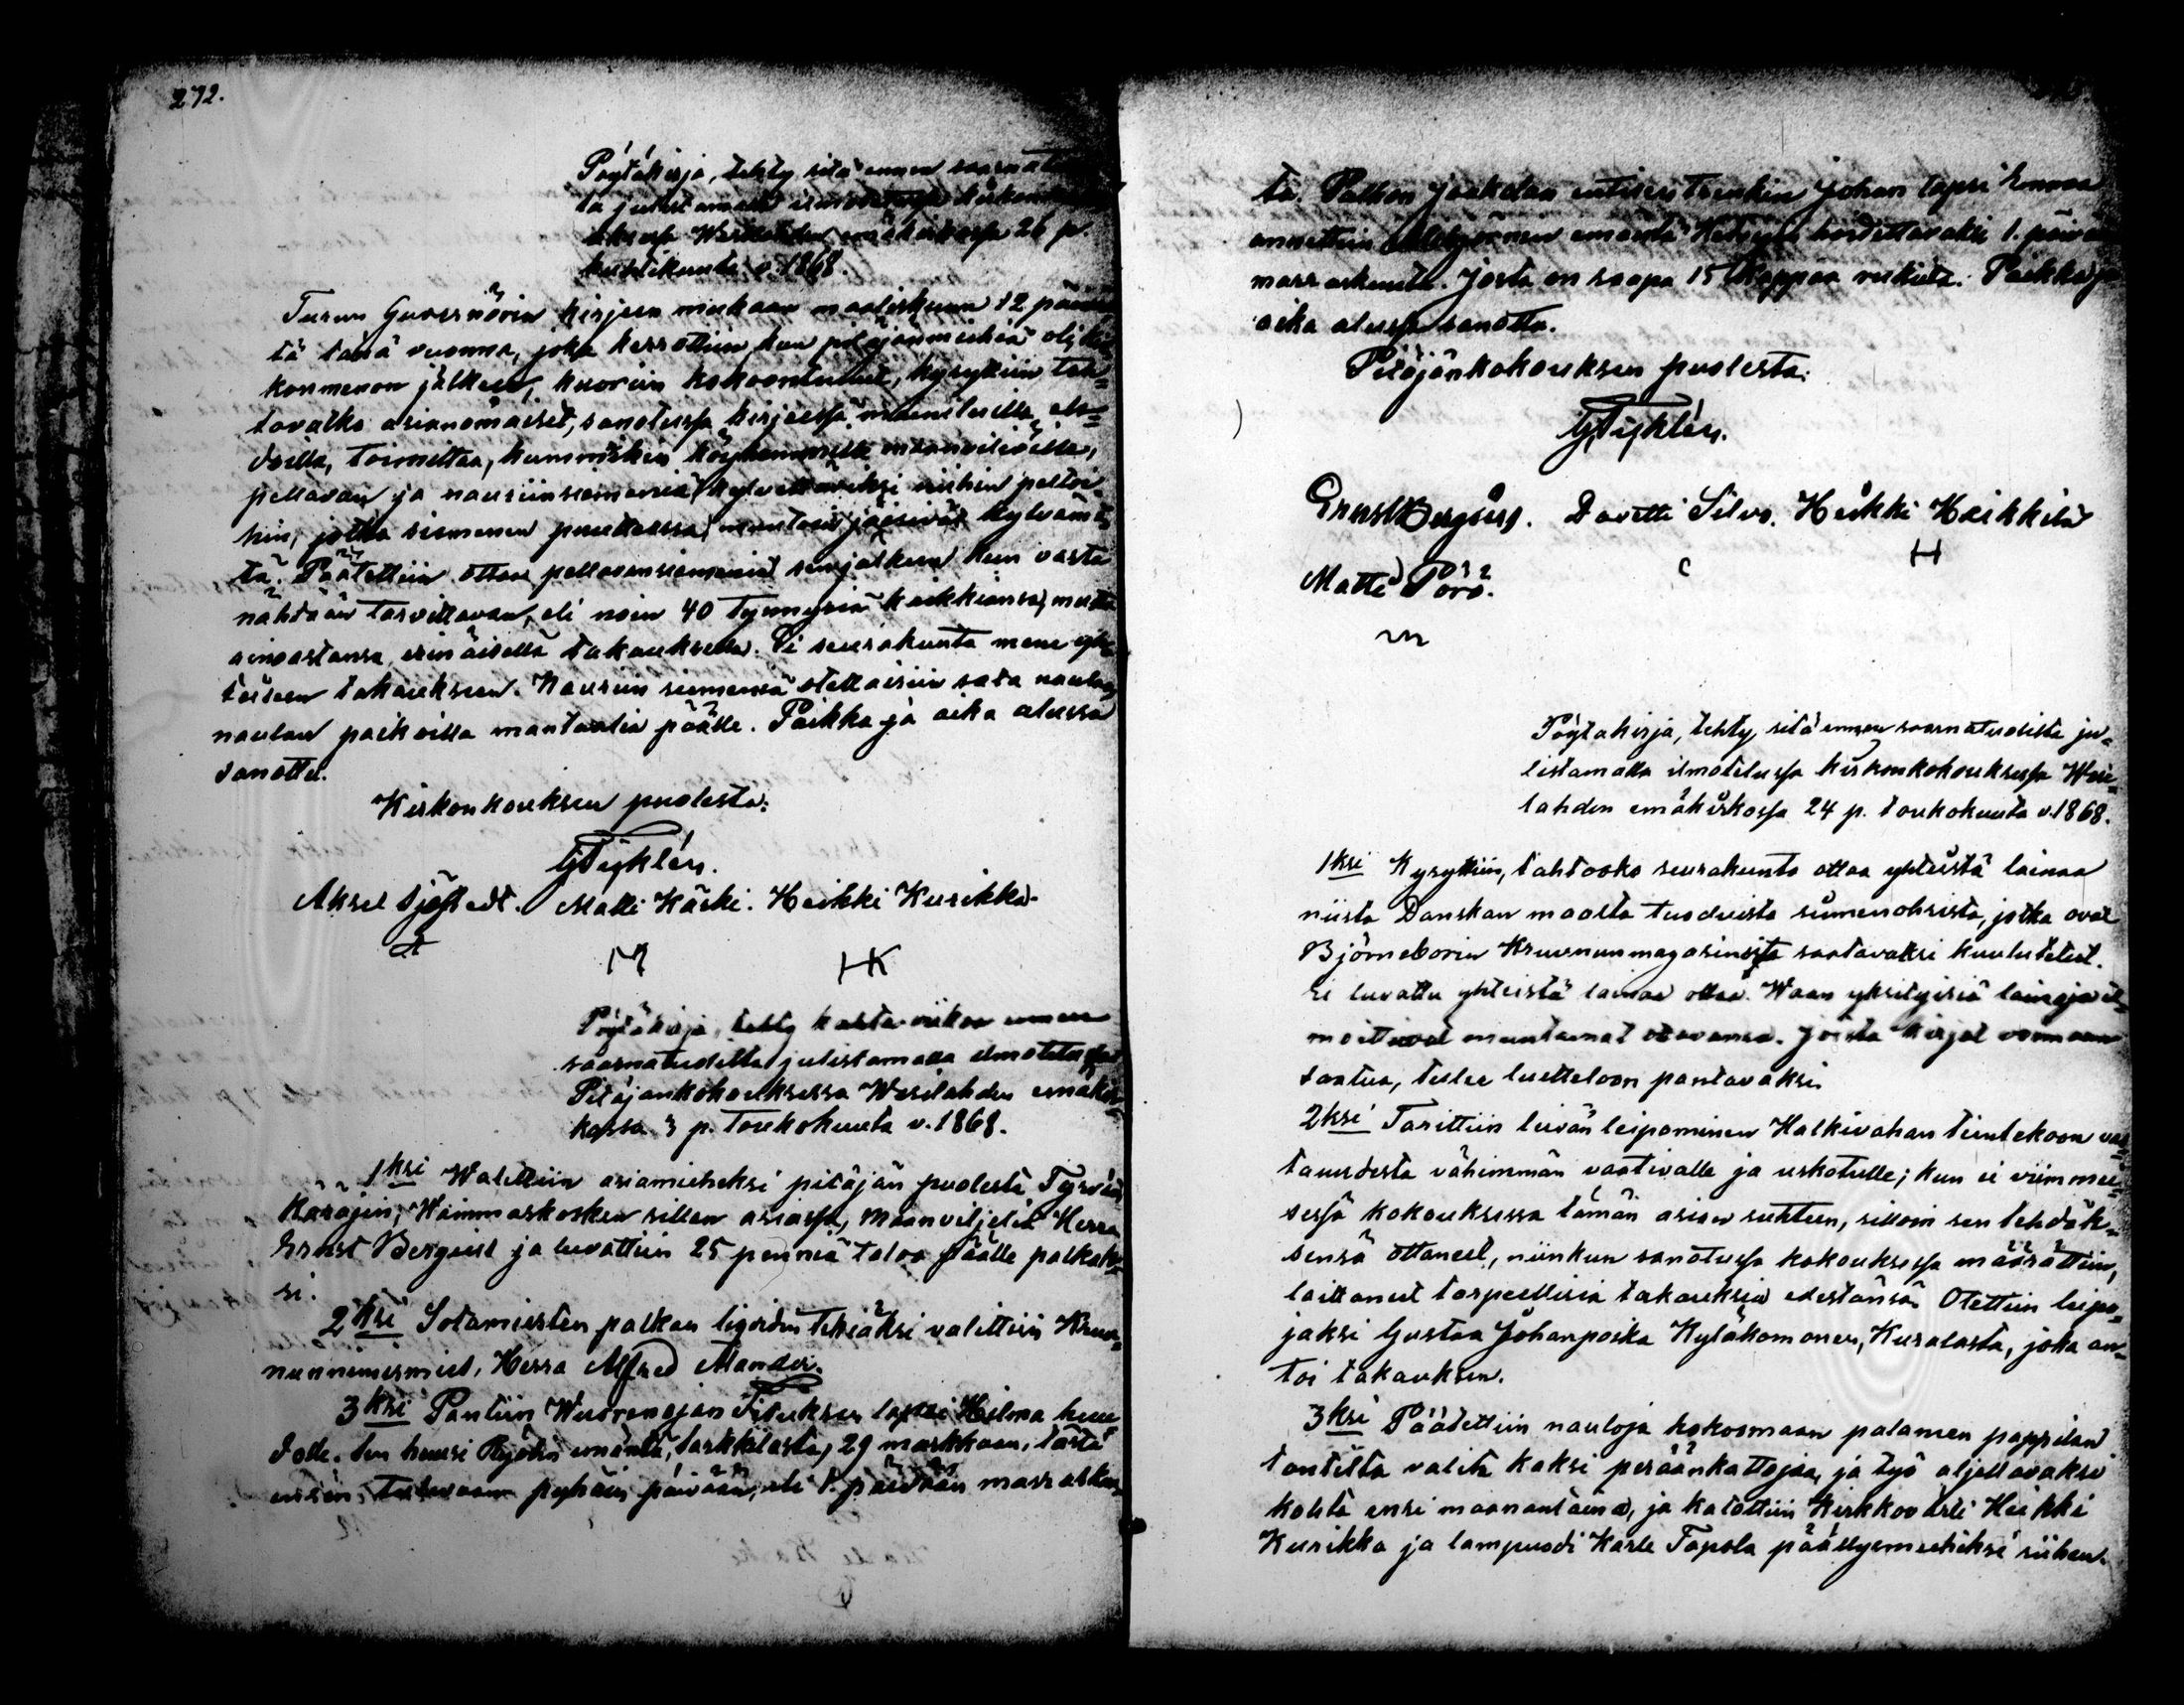 272.
Pöytäkirja, tehty sitä ennen saarnatu
la julistamalla
Wesilahden emäkirkossa 26 p.
huhtikuuta v. 1868.
Turun Guvernörin kirjeen mukaan maaliskuun 12 päivä
tä tänä vuonna, joka kerrottiin, kun pitäjänmiehiä oli kir
konmenon jälkeen, kuoriin kokoontunut, kysyttiin tah-
tovatko asianomaiset, sanotussa kirjeessä mainituilla eh-
doilla, toimittaa, kumminkin köyhemmille maanviljelijille,
pellavan ja nauriin siemeniä kylvettäviksi niihin peltoi
hin, jotka siemenen puutteessa muutoin jäisivät kylvämä
tä. Päätettiin ottaa pellavansiemeniä senjälkeen kun vasta
nähdään tarvittavan, eli noin 40 tynnyriä kaikkiansa, mutta
ainoastansa erinäisellä takauksella. Ei seurakunta mene yh-
teiseen takaukseen. Nauriin siemeniä otettaisiin sata naulaa
naulan paikoilla mantaalin päälle. Paikka ja aika alussa
sanottu.
Kirkonkouksen puolesta:
GTiyklén.
Aksel Sjöstedt. Matti Käski. Heikki Kurikka.
HK
Pöytäkirja, tehty kahta viikoa ennen
saarnatuolilta julistamalla ilmotetussa
Pitäjänkokouksessa Wesilahden emäkir-
kossa 3 p. Toukokuuta v. 1868.
1ksi Walittiin asiamieheksi pitäjän puolesta Tyrvään
Käräjiin, Wammaskosken sillan asiassa, Maanviljeliä Herra
Ernst Bergius ja luvattiin 25 penniä talon päälle palkak-
si.
2ksi Sotamiesten palkan tekiäksi valittiin Kruu-
nunnimismies, Herra Alfred Mander.
3ksi Pantiin Wuorenojan lapsi Hilma huu
dolle. Sen huusi emäntä, 29 markkaan, tästä
pyhäin päivään, eli 1. päivään marraskuu
ta. Palhon Jaakolan entisen trenkin Johan lapsi
annettiin emäntä hoidettavaksi 1. päivään
marraskuuta. Josta on saapa 15 kappaa rukiita. Paikka ja
aika alussa sanottu.
Pitäjänkokouksen puolesta:
GTiyklén.
Ernst Bergius. Davetti Silvo. Heikki Heikkilä
H
Matti Pörö.
Pöytäkirja, tehty sitä ennen saarnatuolilta ju-
listamalla ilmotetussa kirkonkokouksessa Wesi-
lahden emäkirkossa 24 p. toukokuuta v. 1868.
1ksi Kysyttiin, tahtooko seurakunta ottaa yhteistä lainaa
niistä Danskan maasta tuoduista siemenohrista, jotka ovat
Björneborin Kruununmagasinista saatavaksi kuulutetut.
Ei luvattu yhteistä lainaa ottaa. Waan yksityisiä lainoja il-
moittivat muutamat ottavansa. Joista kirjat voimaan
saatua, tulee luetteloon pantavaksi.
2ksi Tarittiin leivän leipominen Halkivahan tiintekoon vas
tauudesta vähimmän vaativalle ja uskotulle; kun ei viimmei-
sessä kokouksessa tämän asian suhteen, silloin sen tehdäk-
sensä ottaneet, niinkun sanotussa kokouksessa määrättiin,
laittaneet tarpeellisia takauksia edestänsä. Otettiin leipo-
jaksi Gustaa Johanpoika Kyläkomonen, Kuralasta, joka an-
toi takauksen.
3ksi Päätettiin nauloja kokoomaan palaneen pappilan
tontilta valita kaksi peräänkattojaa, ja työ aljettavaksi
kohta ensi maanantaina, ja katottiin Kirkkovärti Heikki
Kurikka ja lampuodi Karle Tapola päällysmiehiksi siihen.